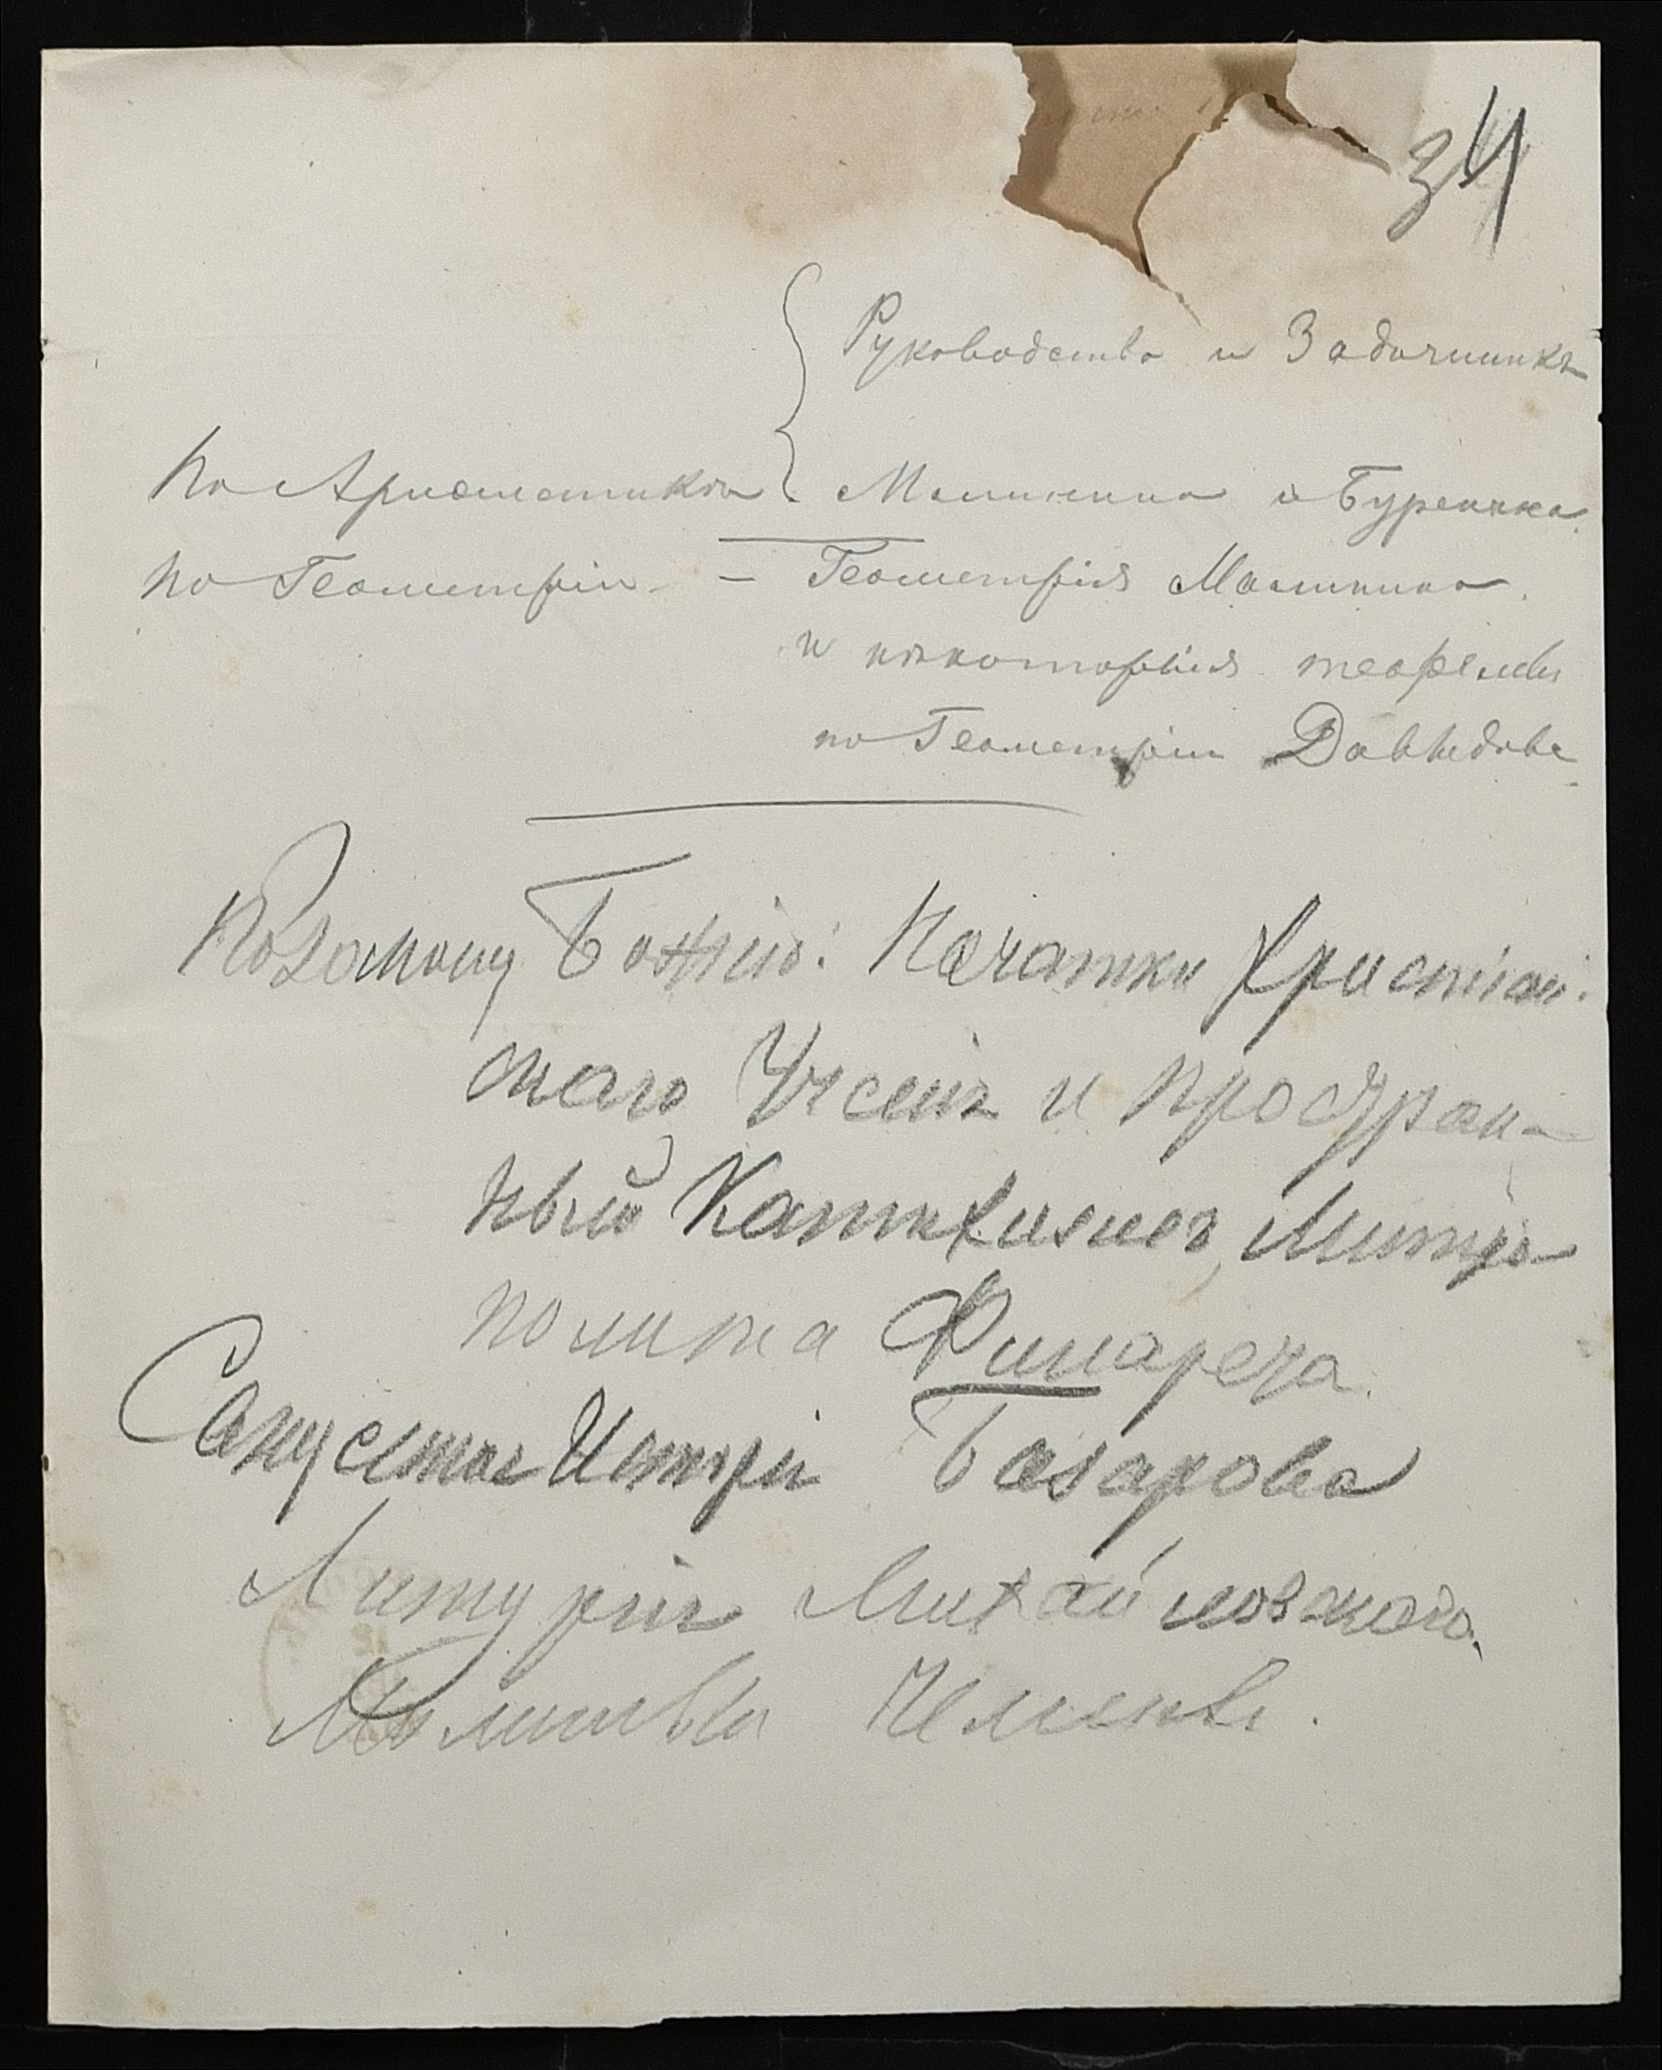 34
Руководство и Задачникъ
По Ариөметикѣ Малинина и Буренина.
По Геометріи – Геометрія Малинина.
и нѣкоторыя теоремы
по Геометріи Давыдова
По Закону Божію: Начатки Христіан-
скаго Ученія и простран-
ный Катихизисъ Митро
полита Филарета.
Исторія Базарова
Литургія Михайловскаго.
Молитвы